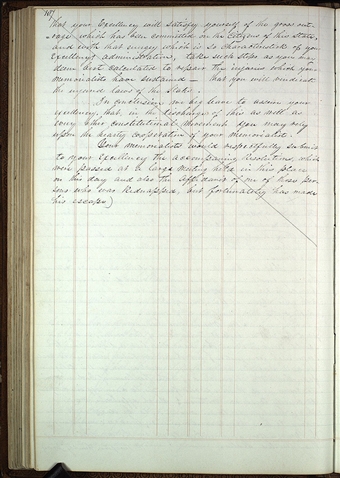 that your Excellency will satisfy yourself of the gross out-
rage which has been committed on the Citizens of this State,
and with that energy which is so characteristic of your
Excellency's administration, take such steps as you may
deem best calculated to repair the injuries which your
Memorialists have sustained — that you will vindicate
the injured laws of the State.
In conclusion we beg leave to assure your
Excellency that, in the discharge of this as well as
every other constitutional you may rely
upon the hearty cooperation of your Memorialists.
Your Memorialists would respectfully submit
to your Excellency the accompanying Resolutions, which
were passed at a large meeting held in this place
on this day and also the affidavit of one of those per-
sons who was Kidnapped, but fortunately has made
his escape)